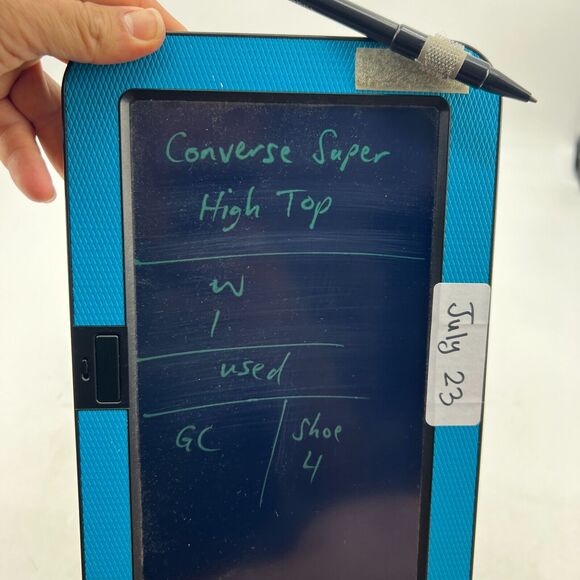 Converse Super
High Top
W
1
used
GC
Shoe
4
July 23